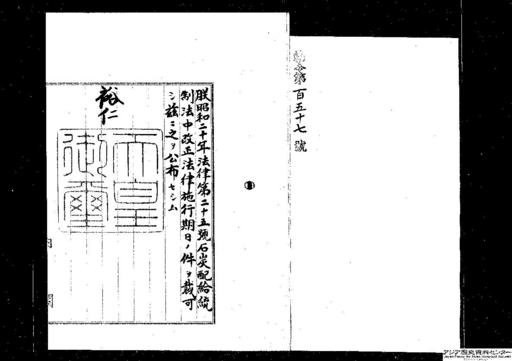 勅令第百五十七號
朕昭和二十年法律第二十五號石炭配給統
制法中改正法律施行期日ノ件ヲ裁可
シ玆ニ之ヲ公布セシム
裕仁
天皇
御璽
アジア歴史資料センター